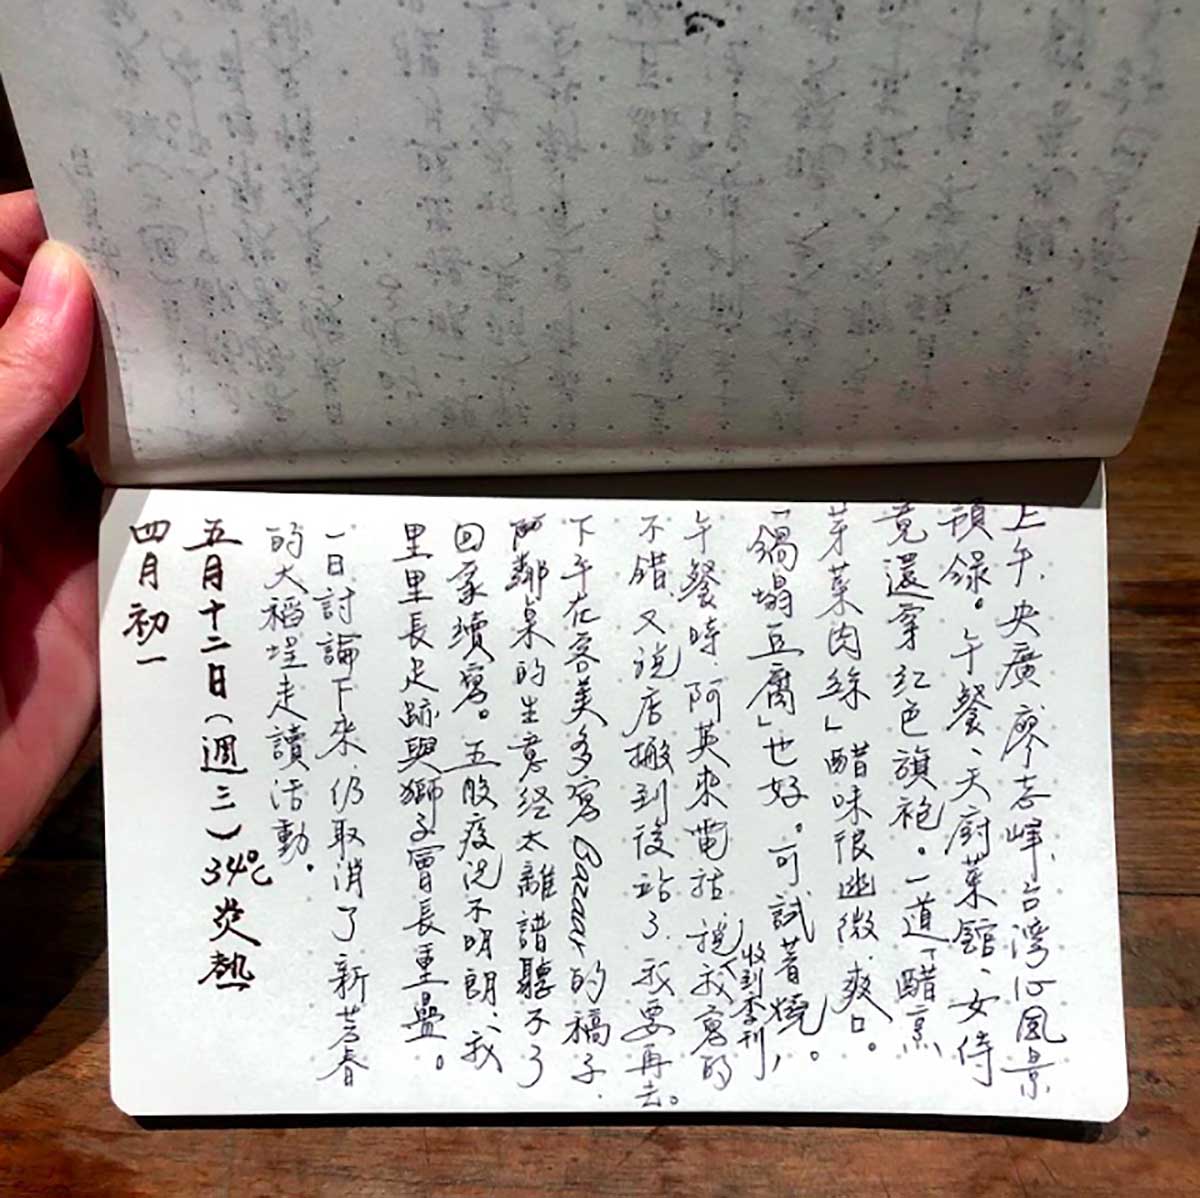 上午、央廣廖志峰,台灣心風景
預錄。午餐、天廚菜館、女侍
竟還穿紅色旗袍。一道「醋烹
芽菜肉絲」醋味很幽微、爽口。
「鍋塌豆腐」也好。可試著燒。
收到季刊,
午餐時,阿英來電話,說我寫的
不錯,又說店搬到後站了,我要再去。
下午在客美多寫Bazaar的稿子.
鄰桌的生意經太離譜聽不了
回家續寫。五股疫況不明朗,我
里里長足跡與獅子會長重疊。
一日討論下來,仍取消了新芳春
的大稻埕走讀活動。
五月十二日(週三)34℃ 炎熱
四月初一